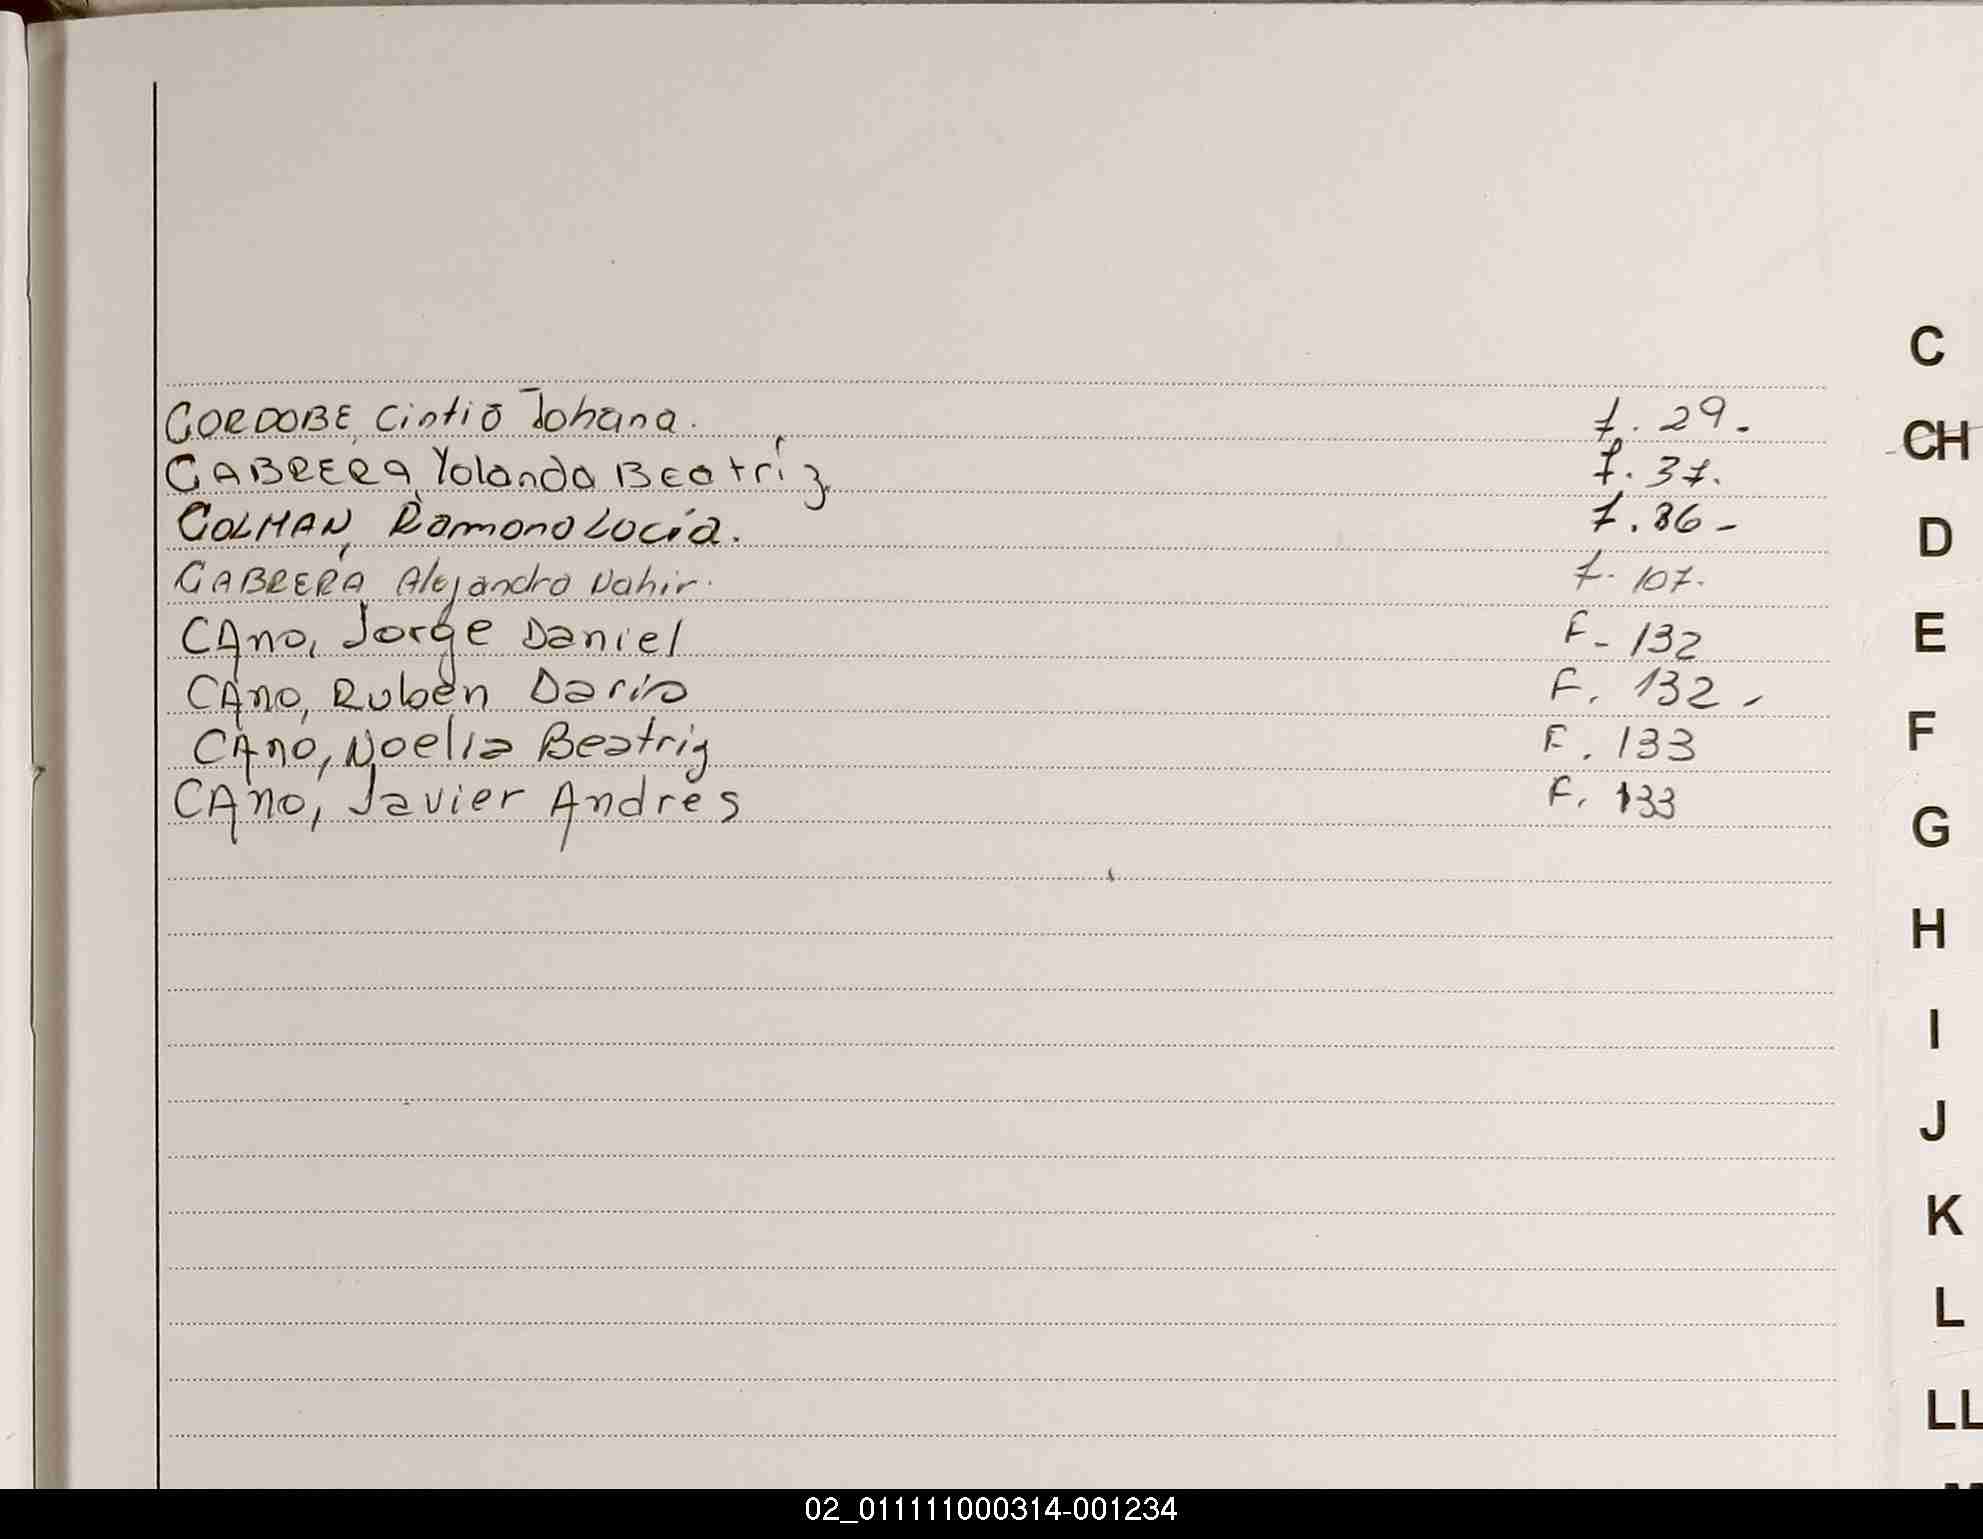 CORDOBE, Cintia Johana. f. 29.-
CABRERA, Yolanda Beatríz. f. 37.
COLMAN, Ramona Lucía. f. 86-
CABRERA, Alejandro Nahir. f. 107.
CAno, Jorge Daniel F- 132
CAno, Ruben Dario F. 132-
CAno, Noelia Beatriz F. 133
CAno, Javier Andres F. 133
C
CH
D
E
F
G
H
I
J
K
L
LL
02_011111000314-001234